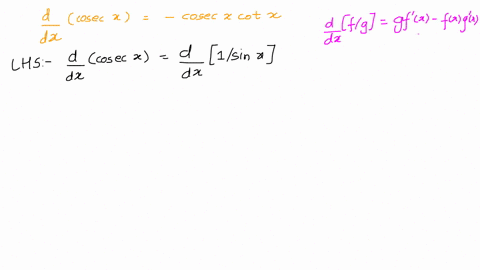 d/dx (cosec x) = - cosec x cot x
d/dx [f/g] = gf'(x) - f(x)g'(x)
LHS:- d/dx (cosec x) = d/dx [1/sin x]